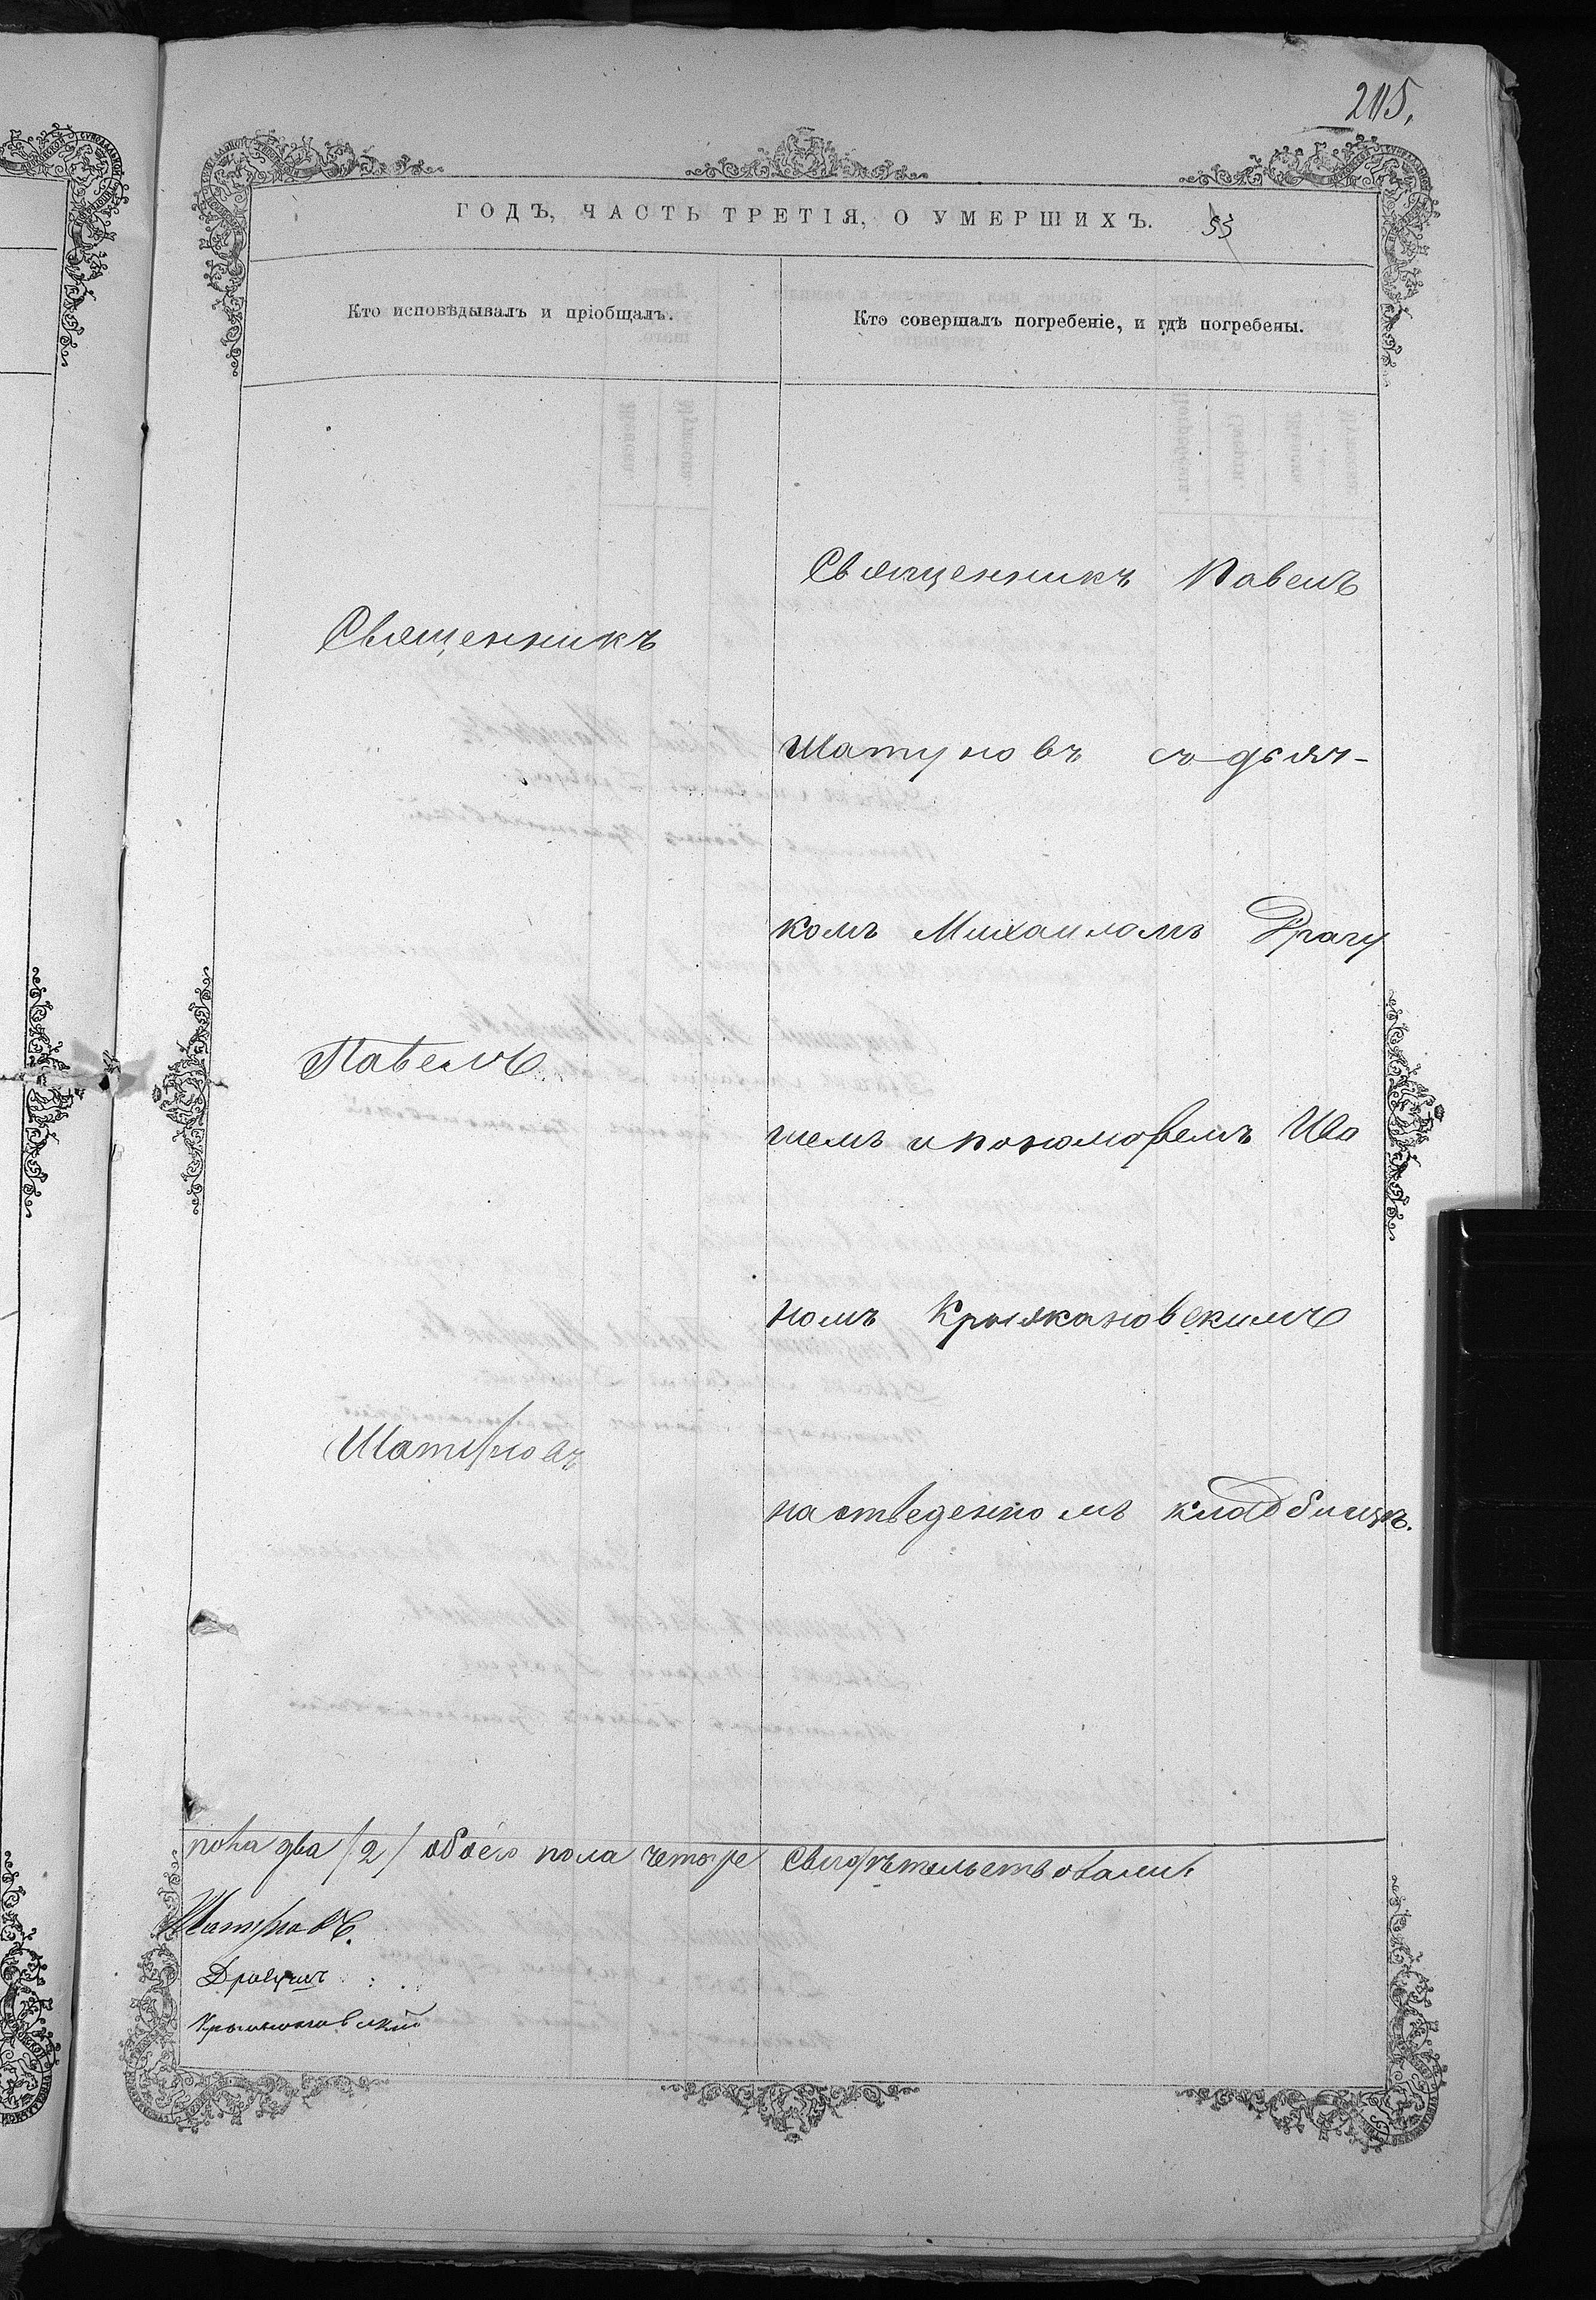 205.
ГОДЪ, ЧАСТЬ ТРЕТІЯ, О УМЕРШИХЪ. 53
Кто исповѣдывалъ и пріобщалъ.
Кто совершалъ погребеніе, и гдѣ погребены.
Священникъ
Павелъ
Шатуновъ
Священникъ Павелъ
Шатуновъ съ дьяч-
комъ Михаиломъ Драгу
шемъ и пономоремъ Ива
номъ Крыжановскимъ
на отведенномъ кладбищѣ.
пола два /2/ обоего пола четыре Свидѣтельствовали:
Шатуновъ.
Драгушъ
Крыжановскій